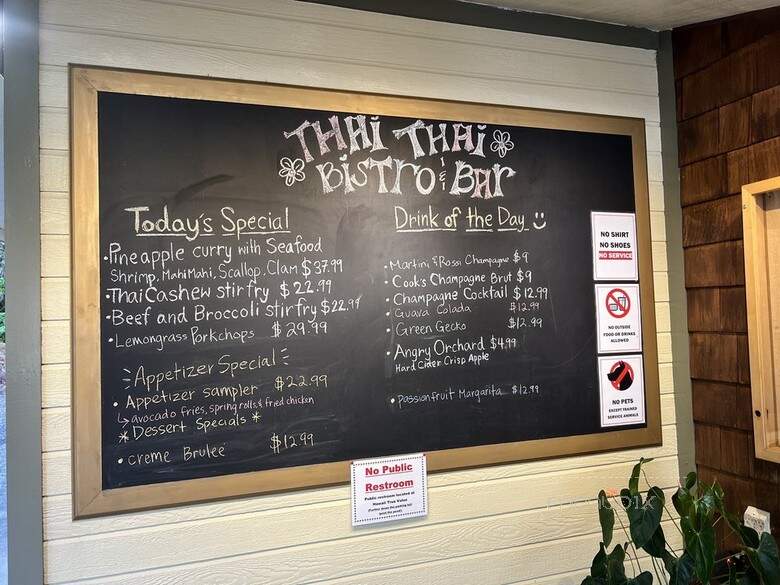 THAI THAI
BISTRO & BAR
Today's Special
• Pineapple curry with Seafood
Shrimp, MahiMahi, Scallop, Clam $37.99
• Thai Cashew stir fry $22.99
• Beef and Broccoli stir fry $22.99
• Lemongrass Porkchops $29.99
Appetizer Special
• Appetizer sampler $22.99
↳ avocado fries, spring rolls, & fried chicken
* Dessert Specials *
• creme Brulee $12.99
Drink of the Day
• Martini & Rossi Champagne $9
• Cook's Champagne Brut $9
• Champagne Cocktail $12.99
Guava Colada $12.99
• Green Gecko $12.99
• Angry Orchard $4.99
Hard Cider Crisp Apple
• Passionfruit Margarita $12.99
NO SHIRT
NO SHOES
NO SERVICE
NO OUTSIDE
FOOD OR DRINKS
ALLOWED
NO PETS
EXCEPT TRAINED
SERVICE ANIMALS
No Public
Restroom
Public restroom located at
Hawaii True Value